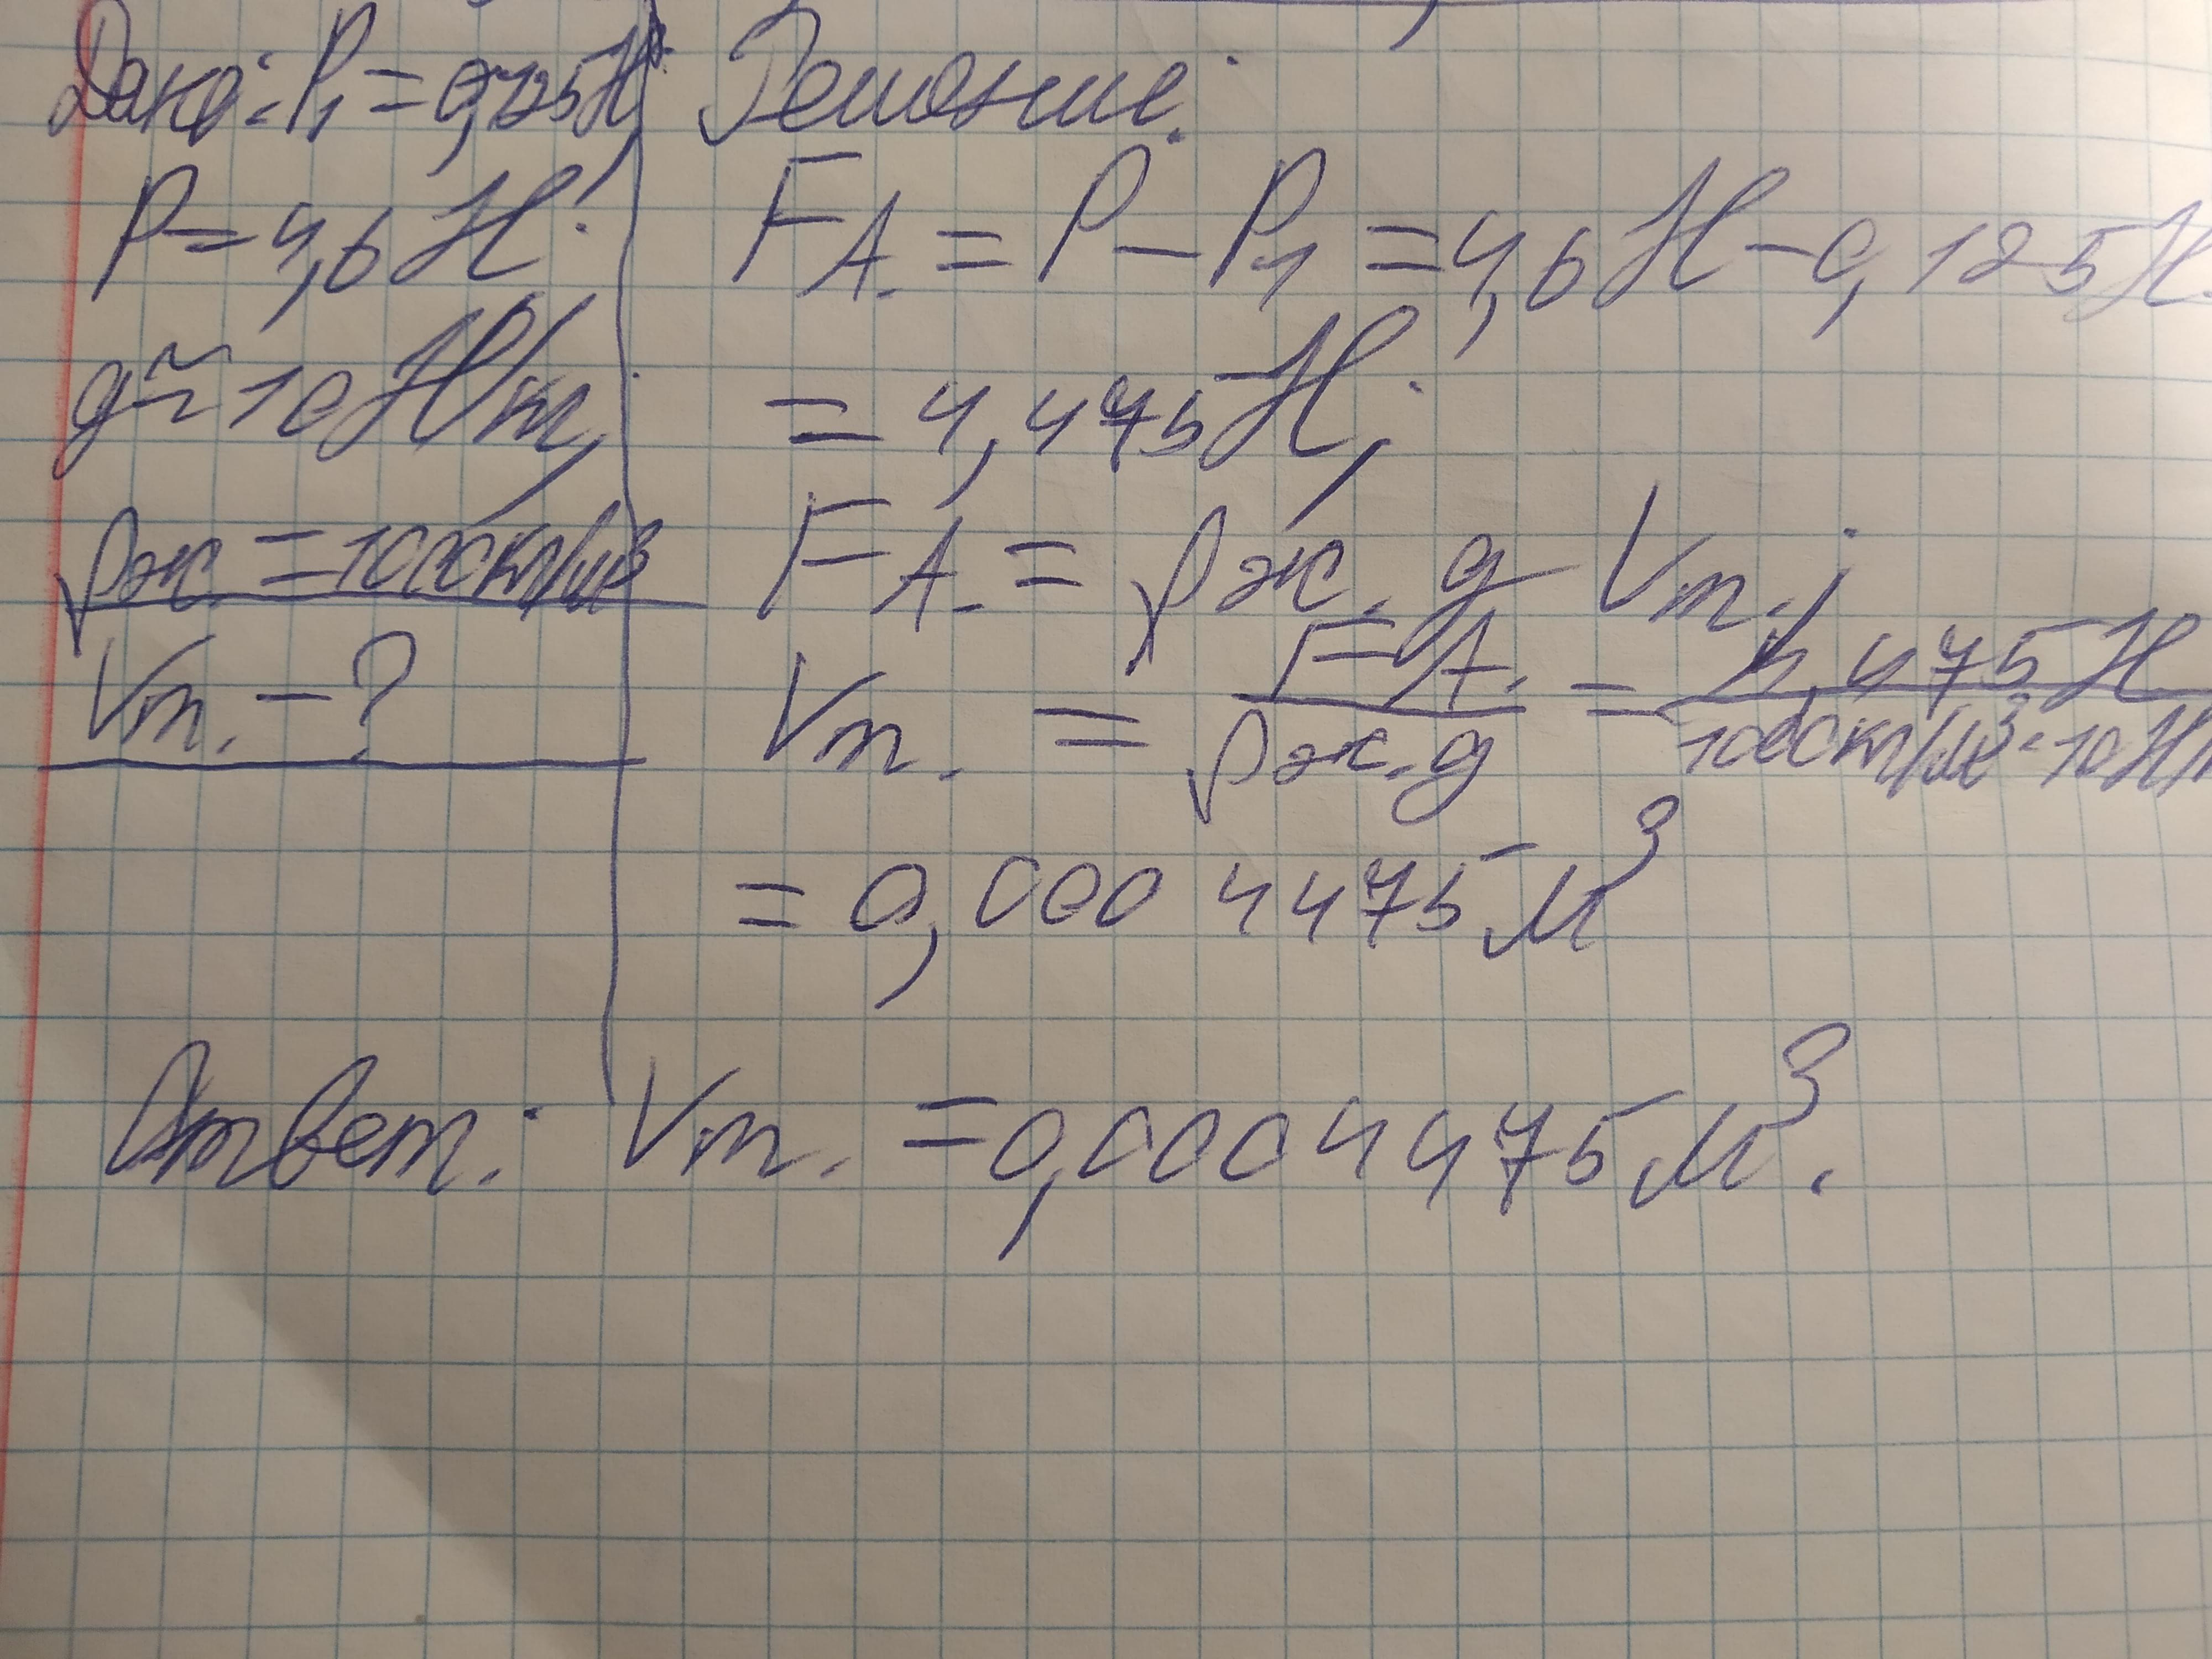 Дано: P₁ = 0,125Н;
P = 4,6 Н;
g ≈ 10 Н/кг;
ρж. = 1000кг/м³
Vт. – ?
Решение:
FА. = P – P₁ = 4,6 Н – 0,125Н
= 4,475Н;
FА. = ρж. g Vт.;
Vт. = FА. / ρж. g = 4,475Н / 1000кг/м³·10Н/к
= 0,0004475 м³
Ответ: Vт. = 0,0004475 м³.